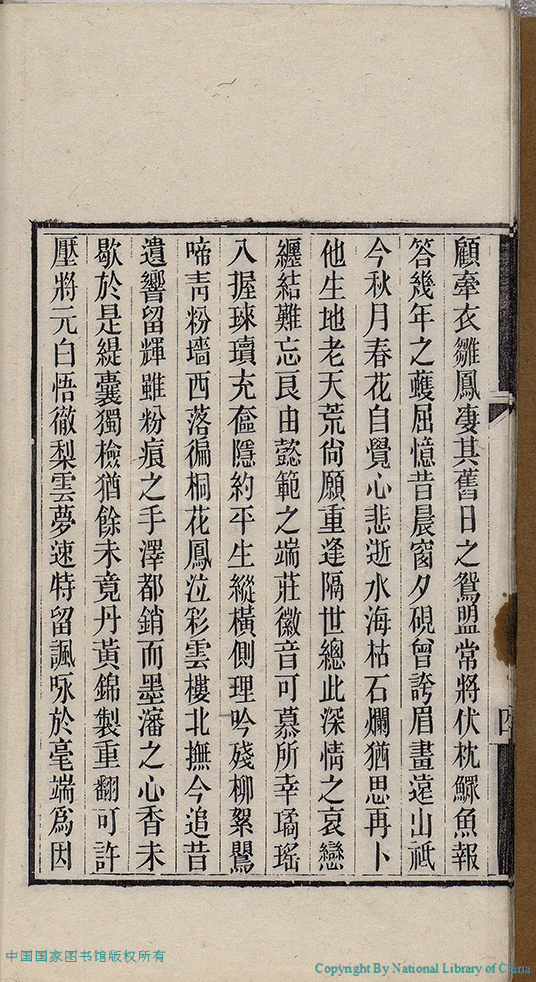 顧牽衣雛鳳淒其舊日之鴛盟常將伏枕鰥魚報
答幾年之蠖屈憶昔晨窗夕硯曾誇眉畫遠山祗
今秋月春花自覺心悲逝水海枯石爛猶思再卜
他生地老天荒尙願重逢隔世總此深情之哀戀
纏結難忘良由懿範之端莊徽音可慕所幸璚瑤
入握琜瓄充奩隱約平生縱橫側理吟殘柳絮鶯
啼靑粉墻西落徧桐花鳳泣彩雲樓北撫今追昔
遺響留輝雖粉痕之手澤都銷而墨瀋之心香未
歇於是緹囊獨檢猶餘未竟丹黃錦製重翻可許
壓將元白悟徹梨雲夢速特留諷咏於毫端爲因
四
中国国家图书馆版权所有
Copyright By National Library of China